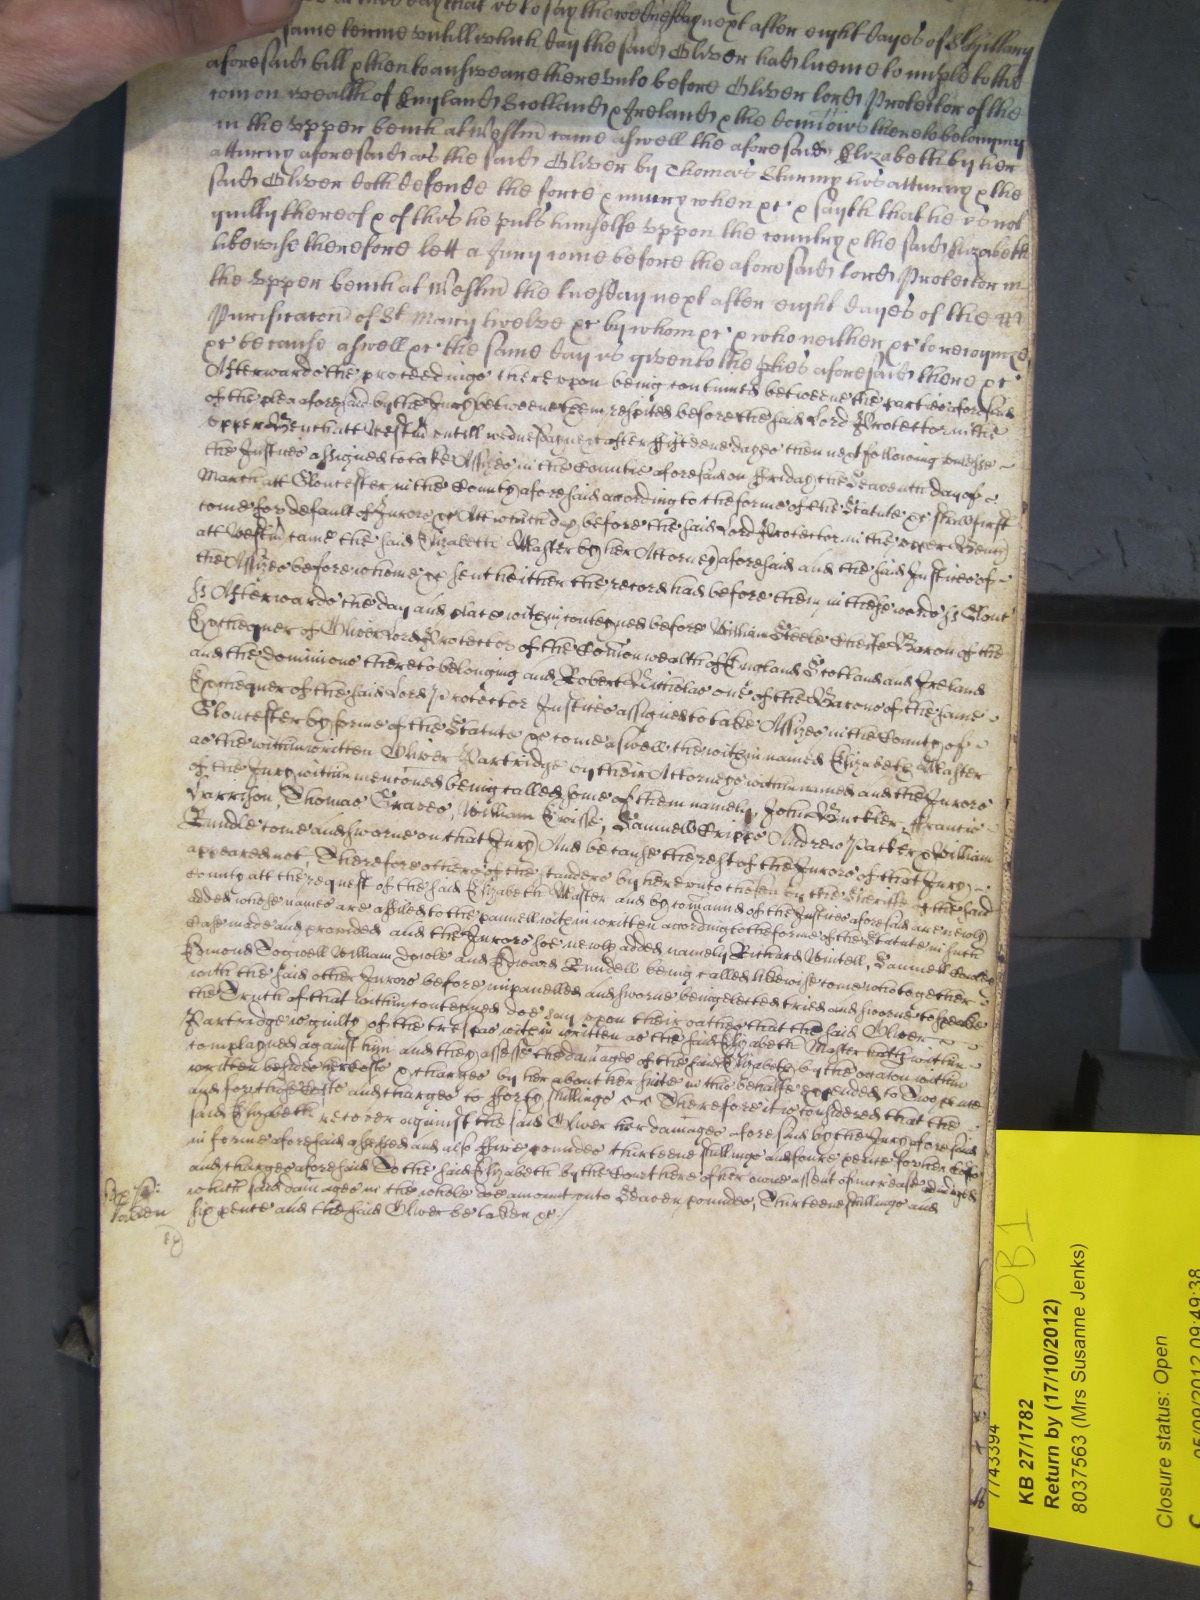 day that is to say the wednesday next after eight dayes of St Hillary
same terme untill which day the said Oliver had lycence to imple to the
aforesaid bill & then to answeare there unto before Oliver lord Protector of the
comon wealth of England Scotland & Ireland & the dominions thereto belonging
in the upper bench at Westm came aswell the aforesaid Elizabeth by her
atturny aforesaid as the said Oliver by Thomas Sturmy his atturny & the
said Oliver doth defende the force & iniury when &c & sayth that he is not
guilty thereof & of this he puts himselfe uppon the country & the said Elizabeth
likewise therefore lett a Jury come before the aforesaid lord Protector in
the upper bench at Westm the tuesday next after eight dayes of the
Purificacon of St Mary twelve &c by whom &c & who neither &c to recognize
&c because aswell &c the same day is given to the pties aforesaid there &c
Afterwards the proceedings thereupon being continued betweene the parties aforesaid
of the plea aforesaid by the Jury betweene them respited before the said Lord Protector in the
upper Bench att Westm untill wednesday next after fifteene dayes then next following unlesse
the Justices assigned to take Assizes in the Countie aforesaid on Friday the Seaventh day of
March att Gloucester in the County aforesaid according to the forme of the Statute &c shall first
come for default of Jurors &c Att which day before the said Lord Protector in the upper Bench
att Westm came the said Elizabeth Master by her Attorney aforesaid and the said Justices of
the Assizes before whome &c sent hether the record had before them in these words ss Glouc
ss Afterwards the day and place within conteyned before William Steele Cheife Baron of the
Exchequer of Oliver Lord Protector of the Comonwealth of England Scotland and Ireland
and the dominions thereto belonging and Robert Nicholas one of the Barons of the same
Exchequer of the said Lord Protector Justices assigned to take Assizes in the County of
Gloucester by forme of the Statute &c come aswell the within named Elizabeth Master
as the within written Oliver Partridge by their Attorneys within named and the Jurors
of the Jury within mentioned being called some of them namely, John Buckler, Francis
Harrison, Thomas Graves, William Twisse, Samuell Cripps Andrew Packer & William
Rundle come and sworne on that Jury And because the rest of the Jurors of that Jury
appeared not, Therefore others of the standers by hereunto chosen by the Sheriffe of the said
County att the request of the said Elizabeth Master and by comannd of the Justices aforesaid are newly
added whose names are affiled to the pannell within written according to the forme of the Statute in such
case made and provided and the Jurors soe newly added namely Richard Vintell, Samuell
Edmond Dogwell William Dowle and Edward Rundell being called likewise come who together
with the said other Jurors before impanelled and sworne being elected tried and sworne to speake
the Truth of that within conteyned doe say upon their oathes that the said Oliver
Partridge is guilty of the trespas within written as the said Elizabeth Master hath within
complayned against him and they assesse the damages of the said Elizabeth by the occasion within
written besides her costs & charges by her about her suite in this behalfe expended to Two pence
and for those costs and charges to forty shillings Therefore it is considered that the
said Elizabeth recover against the said Oliver her damages aforesaid by the Jury aforesaid
in forme aforesaid assessed and also ffive pounds thirteene shillings and foure pence for her costs
and charges aforesaid To the said Elizabeth by the Court here of her owne assent of increase adiudged
which said damages in the whole doe amount unto Seaven pounds, Thirteene shillings and
six pence and the said Oliver be taken &c
KB 27/1782
Return by (17/10/2012)
8037563 (Mrs Susanne Jenks)
Closure status: Open
05/09/2012 09:49:38
OB1